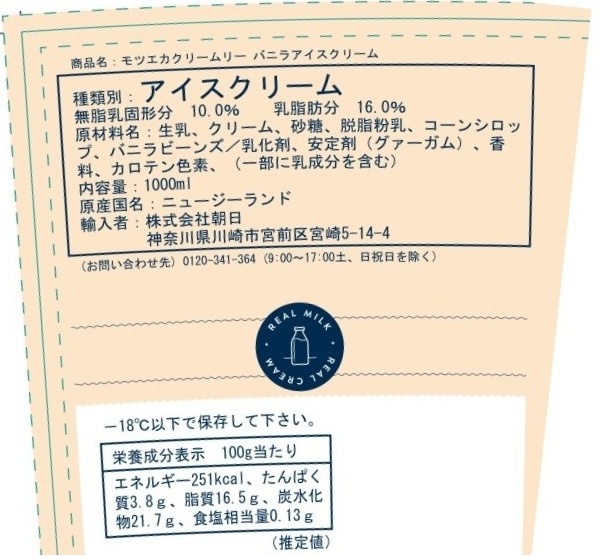 商品名：モツエカクリームリー バニラアイスクリーム
種類別：アイスクリーム
無脂乳固形分　10.0%　　乳脂肪分　16.0%
原材料名：生乳、クリーム、砂糖、脱脂粉乳、コーンシロッ
プ、バニラビーンズ／乳化剤、安定剤（グァーガム）、香
料、カロテン色素、（一部に乳成分を含む）
内容量：1000ml
原産国名：ニュージーランド
輸入者：株式会社朝日
神奈川県川崎市宮前区宮崎5-14-4
（お問い合わせ先）0120-341-364（9:00〜17:00土、日祝日を除く）
REAL MILK
REAL CREAM
－18℃以下で保存して下さい。
栄養成分表示　100g当たり
エネルギー251kcal、たんぱく
質3.8ｇ、脂質16.5ｇ、炭水化
物21.7ｇ、食塩相当量0.13ｇ
（推定値）